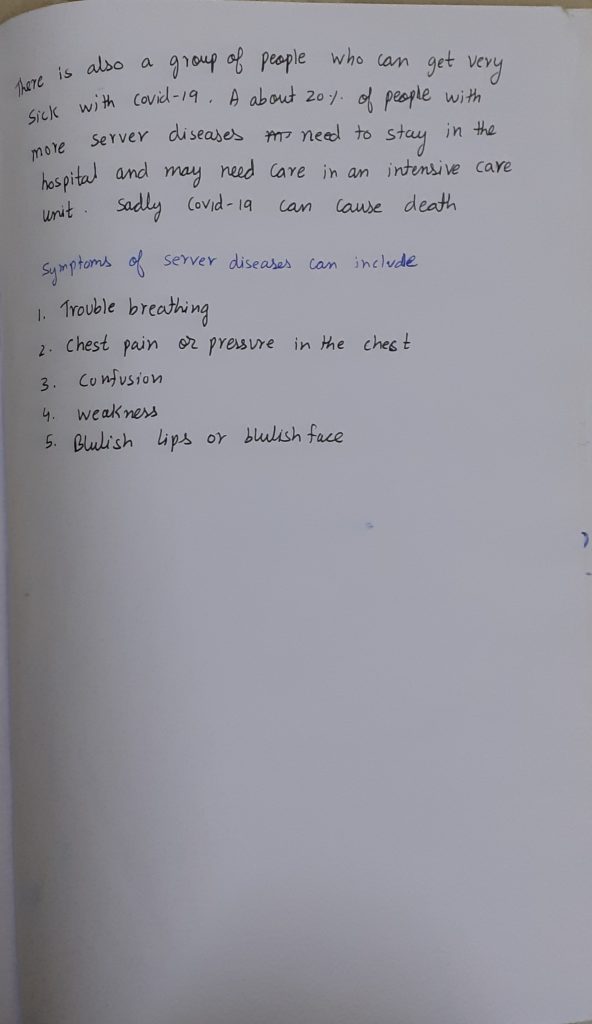 There is also a group of people who can get very
sick with covid-19. A about 20% of people with
more server diseases need to stay in the
hospital and may need care in an intensive care
unit. Sadly Covid-19 can cause death
Symptoms of server diseases can include
1. Trouble breathing
2. Chest pain or pressure in the chest
3. Confusion
4. Weakness
5. Blulish lips or blulish face